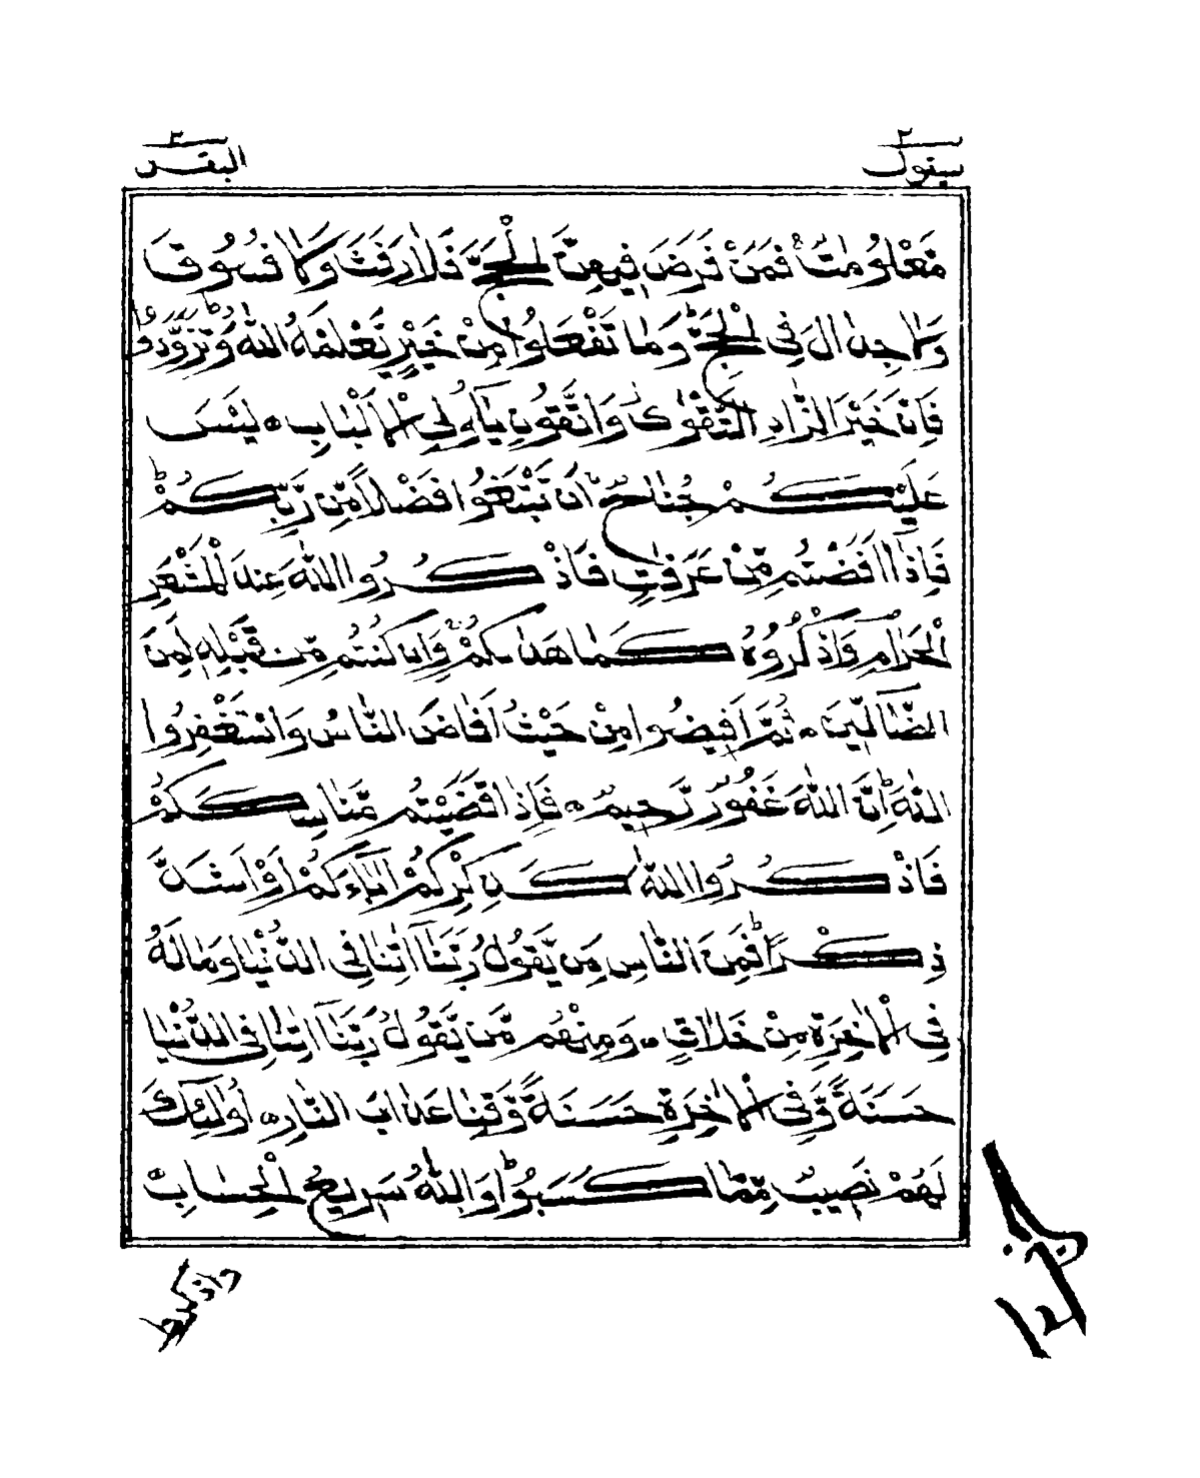 سيقول ٢
البقرة ٢
مَّعْلُومٰتٌ ۚ فَمَنْ فَرَضَ فِيهِنَّ الْحَجَّ فَلَا رَفَثَ وَلَا فُسُوقَ
وَلَا جِدَالَ فِي الْحَجِّ ؕ وَمَا تَفْعَلُوا مِنْ خَيْرٍ يَّعْلَمْهُ اللّٰهُ ؕ وَتَزَوَّدُوا
فَاِنَّ خَيْرَ الزَّادِ التَّقْوٰى وَاتَّقُونِ يٰاُولِى الْاَلْبَابِ ہ لَيْسَ
عَلَيْكُمْ جُنَاحٌ اَنْ تَبْتَغُوا فَضْلًا مِّنْ رَّبِّكُمْ ؕ
فَاِذَآ اَفَضْتُم مِّنْ عَرَفٰتٍ فَاذْكُرُوا اللّٰهَ عِندَ الْمَشْعَرِ
الْحَرَامِ ۪ وَاذْكُرُوهُ كَمَا هَدٰىكُمْ ۚ وَاِن كُنتُم مِّن قَبْلِهٖ لَمِنَ
الضَّآلِّينَ ہ ثُمَّ اَفِيضُوا مِنْ حَيْثُ اَفَاضَ النَّاسُ وَاسْتَغْفِرُوا
اللّٰهَ ؕ اِنَّ اللّٰهَ غَفُورٌ رَّحِيمٌ ہ فَاِذَا قَضَيْتُم مَّنَاسِكَكُمْ
فَاذْكُرُوا اللّٰهَ كَذِكْرِكُمْ اٰبَآءَكُمْ اَوْ اَشَدَّ
ذِكْرًا ؕ فَمِنَ النَّاسِ مَن يَّقُولُ رَبَّنَآ اٰتِنَا فِى الدُّنْيَا وَمَا لَهٗ
فِى الْاٰخِرَةِ مِنْ خَلَاقٍ ہ وَمِنْهُم مَّن يَّقُولُ رَبَّنَآ اٰتِنَا فِى الدُّنْيَا
حَسَنَةً وَّفِى الْاٰخِرَةِ حَسَنَةً وَّقِنَا عَذَابَ النَّارِ ہ اُولٰٓئِكَ
لَهُمْ نَصِيبٌ مِّمَّا كَسَبُوا ؕ وَاللّٰهُ سَرِيعُ الْحِسَابِ ہ
واذكروا